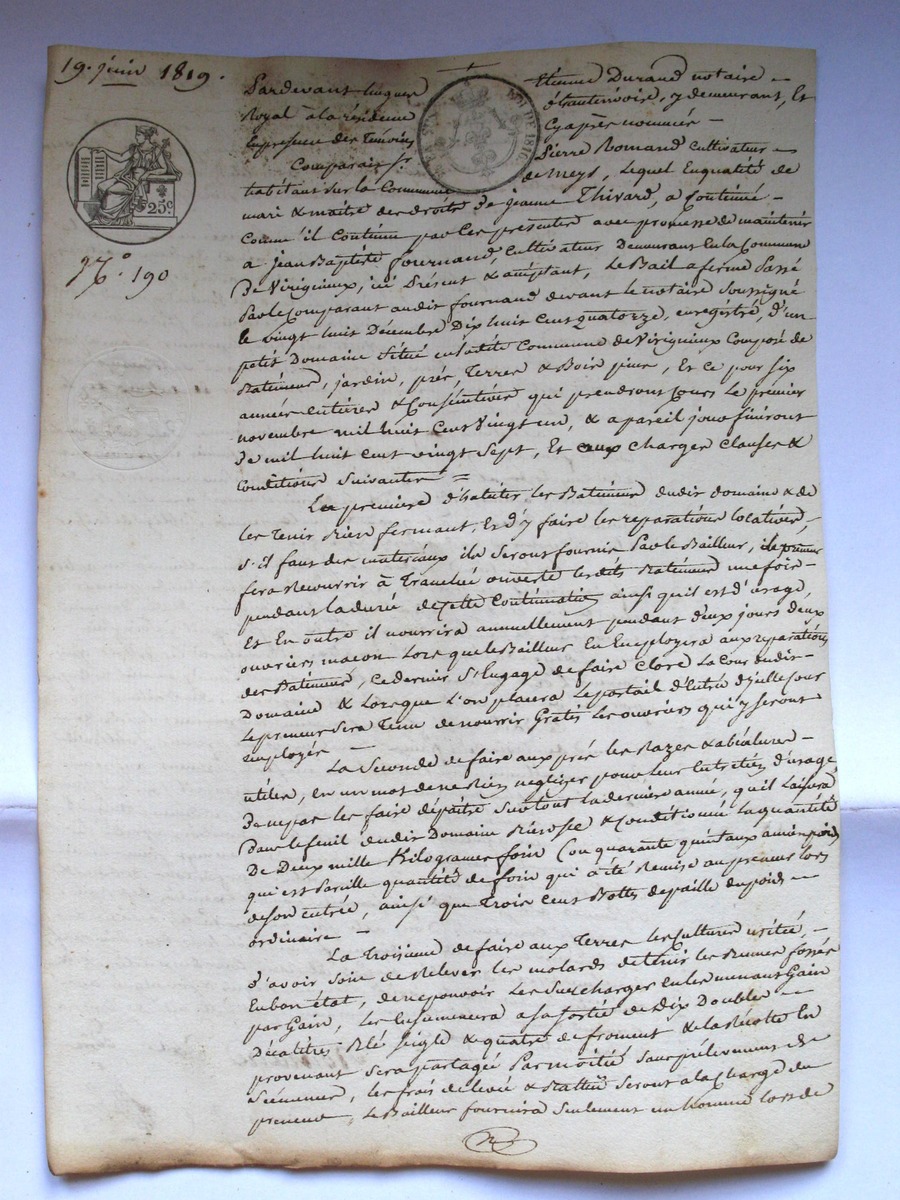 19. juin 1819.
Pardevant luques Etienne Durand notaire
Royal à la résidence , y demeurant, Et
En présence des Témoins Cyaprès nommés
Comparais Pierre Romand Cultivateur
habitant sur la Commune de meys, lequel En qualité de
mari & maitre des droits de jeanne Thivard, a Continué
Comme il Continue par Ces présentes avec promesse de maintenir
a jean Baptiste fournand, Cultivateur Demeurant En la Commune
De Virigieux, ici Présent & acceptant, Le Bail a ferme Passé
Par le Comparant audit fournand devant le notaire soussigné
le vingt huit Décembre Dix huit Cent quatorze, enregistré, d'un
petit Domaine situé en ladite Commune de Virignieux Composé de
Batiment, jardin, prés, Terres & Bois pins, Et ce pour six
années Entières & Consécutives qui prendront Cours le premier
novembre mil huit Cent Vingt un, & a pareil jour finiront
De mil huit Cent vingt Sept, Et aux charges Clauses &
Conditions Suivantes =
La première d'habiter les Batiments dudit domaine & de
les Tenir Bien fermant, Et d'y faire les reparations locatives,
s'il faut des materiaux ils Seront fournis Par le Bailleur, le preneur
fera Recourrir à Tranché ouverte lesdits Batiments une fois
pendant la duré de cette Continuation ainsi qu'il est d'usage,
Et En outre il nourrira annuellement pendant deux jours deux
ouvriers maçon Lorsque le Bailleur En Employera aux reparations
des Batiments, ce dernier s'Engage de faire Clore La Cour dudit
Domaine & Lorsque L'on placera le portail d'Entrée d'icelle Cour
Le preneur Sera Tenu de nourrir Gratis les ouvriers qui y seront
employés
La Seconde de faire aux prés les Razes & abéalures
utiles, en un mot de ne Rien négliger pour leur Entretien d'usage
De ne pas les faire dépaitre Surtout la dernière année, qu'il Laissera
Dans le fenil dudit Domaine & Conditionné La quantité
De Deux mille Kilogrames foin (ou quarante quintaux ancien poids
qui est Pareille quantité de foin qui a été Remise au preneur lors
de son entrée, ainsi que Trois Cent Bottes de paille du poids
ordinaire
La Troisieme de faire aux Terres les Cultures usitées,
D'avoir Soin de Relever les molards de Tenir les Rumes fossés
En bon état, de ne pouvoir Les Surcharger En les menant Gain
par Gain, Les Ensemencera a sa sortie de Dix Doubles
Décalitres Blé seigle & quatre de froment & la Récolte En
provenant Sera partagée Par moitié Sans prélevement de
Semences, les frais de levée & Battue Seront a la Charge du
preneur, le Bailleur fournira Seulement un homme lors de
25c
No. 190